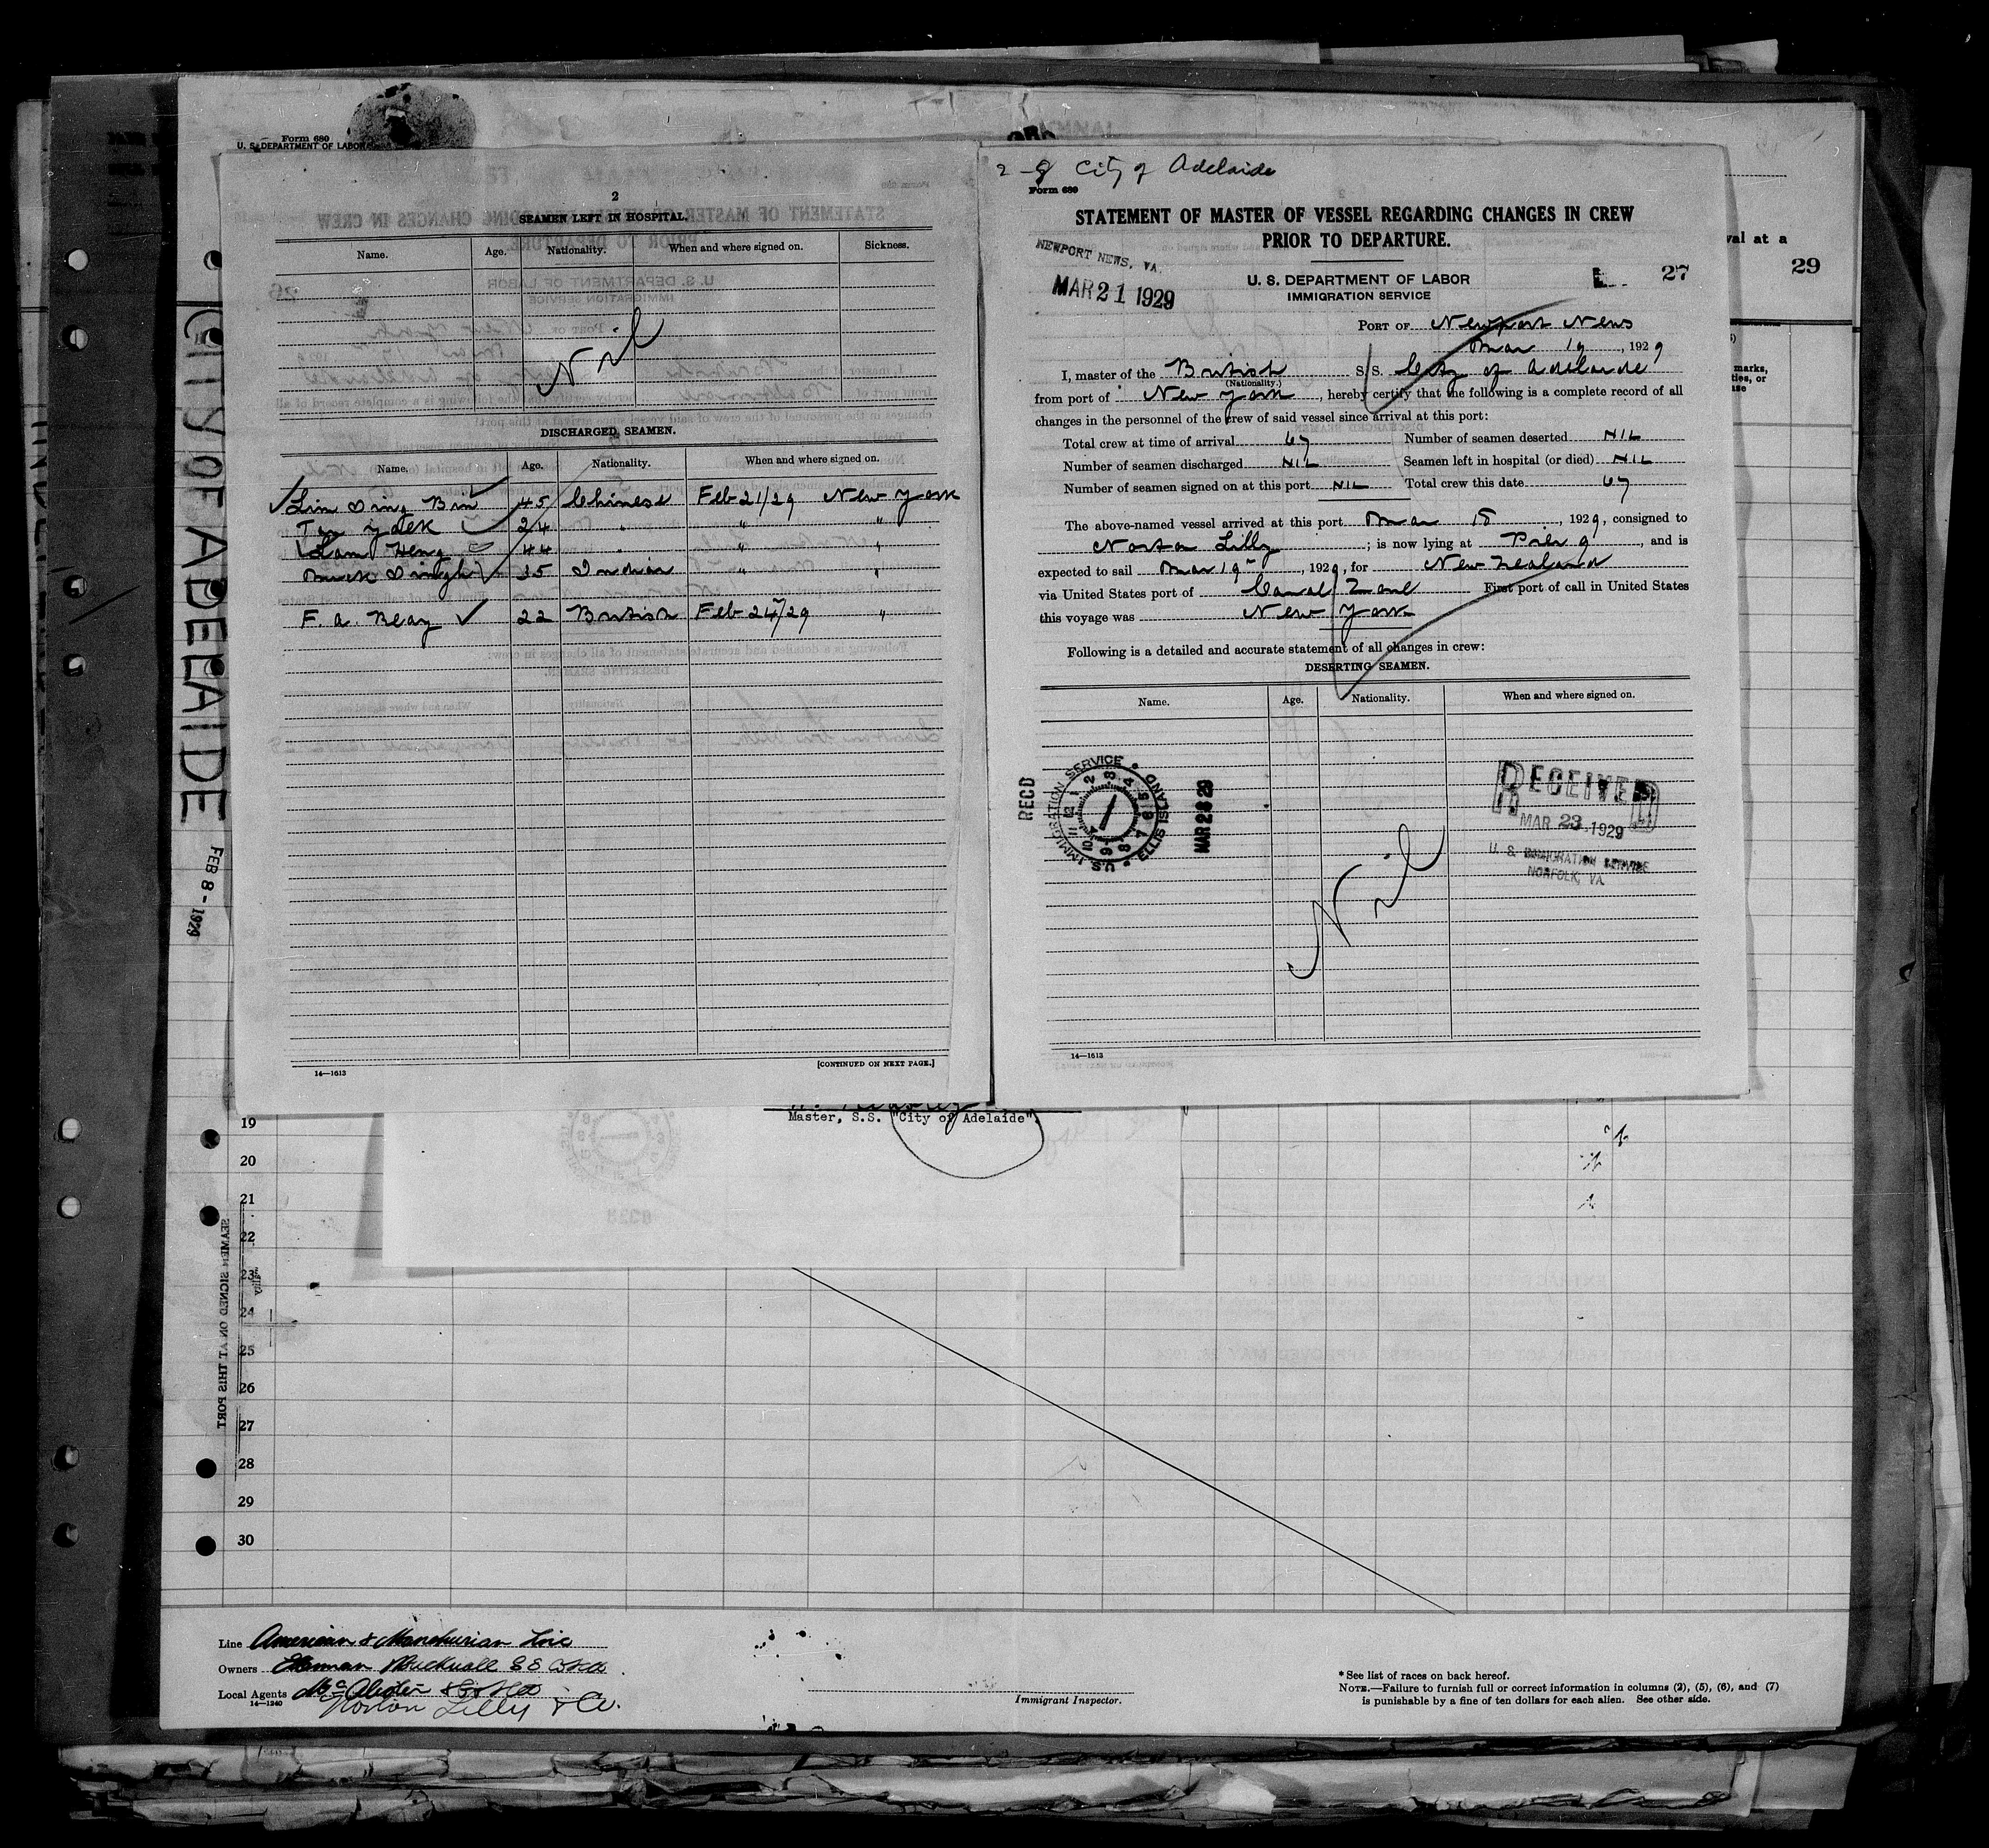 Form 680
U. S. DEPARTMENT OF LABOR
CITY OF ADELAIDE
FEB 8 - 1929
2
SEAMEN LEFT IN HOSPITAL.
Name. Age. Nationality. When and where signed on. Sickness.
Nil
DISCHARGED SEAMEN.
Name. Age. Nationality. When and where signed on.
45 Chinese Feb 21/29 New York
24 " " "
Heng 44 " " "
Singh 35 Indian " "
F. A. Beay 22 British Feb 24/29 "
14—1613
[CONTINUED ON NEXT PAGE.]
2-8 City of Adelaide
Form 680
STATEMENT OF MASTER OF VESSEL REGARDING CHANGES IN CREW
PRIOR TO DEPARTURE.
NEWPORT NEWS, VA.
MAR 21 1929
U. S. DEPARTMENT OF LABOR
IMMIGRATION SERVICE
27
PORT OF Newport News
Mar 19, 1929
I, master of the British S. S. City of Adelaide
(Nationality.)
from port of New York, hereby certify that the following is a complete record of all
changes in the personnel of the crew of said vessel since arrival at this port:
Total crew at time of arrival 67 Number of seamen deserted NIL
Number of seamen discharged NIL Seamen left in hospital (or died) NIL
Number of seamen signed on at this port NIL Total crew this date 67
The above-named vessel arrived at this port Mar 18, 1929, consigned to
Norton Lilly; is now lying at Pier 9, and is
expected to sail Mar 19, 1929, for New Zealand
via United States port of Canal Zone First port of call in United States
this voyage was New York
Following is a detailed and accurate statement of all changes in crew:
DESERTING SEAMEN.
Name. Age. Nationality. When and where signed on.
Nil
RECD
U.S. IMMIGRATION SERVICE • ELLIS ISLAND
MAR 28 29
RECEIVED
MAR 23 1929
U. S. IMMIGRATION SERVICE
NORFOLK, VA.
14—1613
val at a
29
marks,
ties, or
use
Master, S.S. "City of Adelaide".
19
20
21
22
23
24
25
26
27
28
29
30
SEAMEN SIGNED ON AT THIS PORT
Line American & Manchurian Line
Owners Ellerman & Bucknall S S Co Ltd
Local Agents
14—1240
Norton Lilly & Co.
Immigrant Inspector.
* See list of races on back hereof.
NOTE.—Failure to furnish full or correct information in columns (2), (5), (6), and (7)
is punishable by a fine of ten dollars for each alien. See other side.